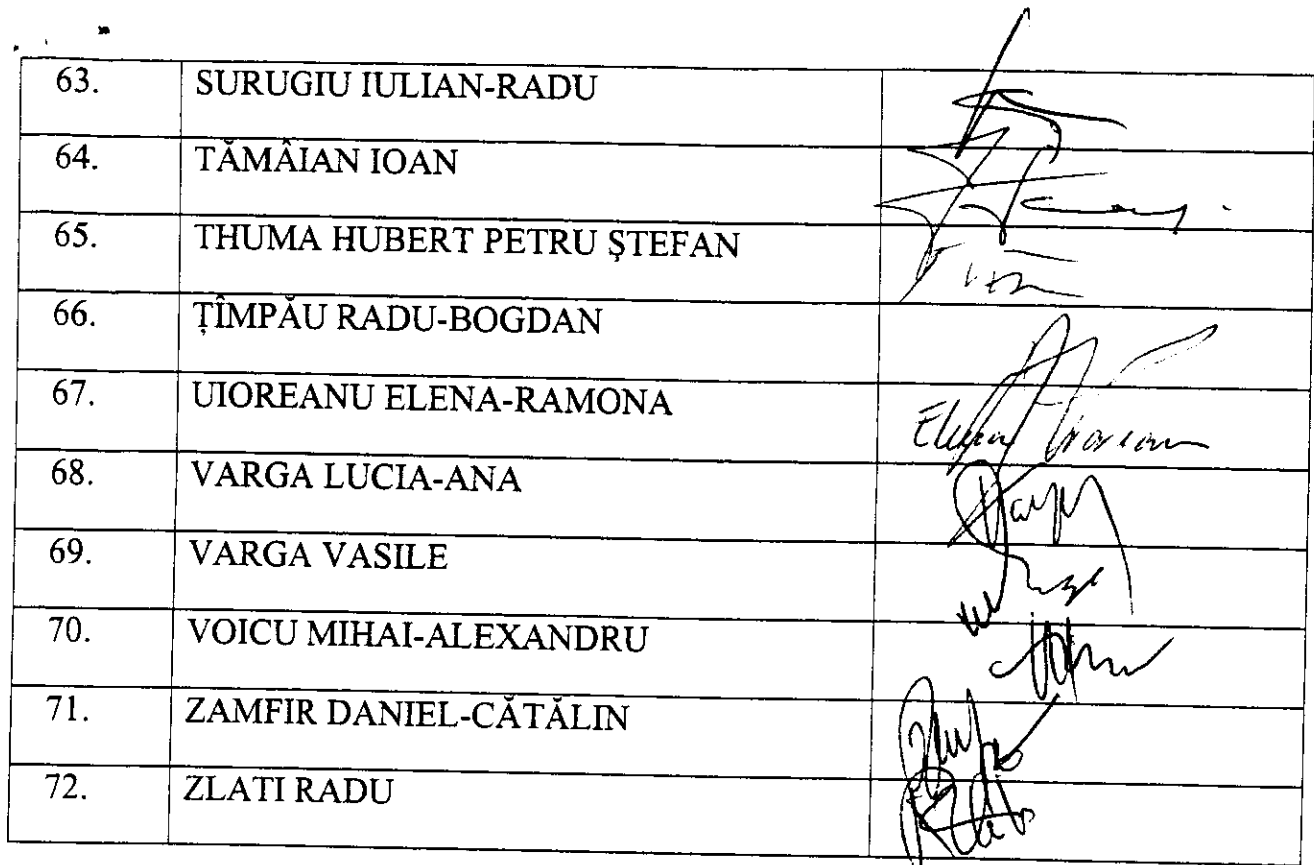 63. SURUGIU IULIAN-RADU
64. TĂMÂIAN IOAN
65. THUMA HUBERT PETRU ŞTEFAN
66. ŢÎMPĂU RADU-BOGDAN
67. UIOREANU ELENA-RAMONA
68. VARGA LUCIA-ANA
69. VARGA VASILE
70. VOICU MIHAI-ALEXANDRU
71. ZAMFIR DANIEL-CĂTĂLIN
72. ZLATI RADU